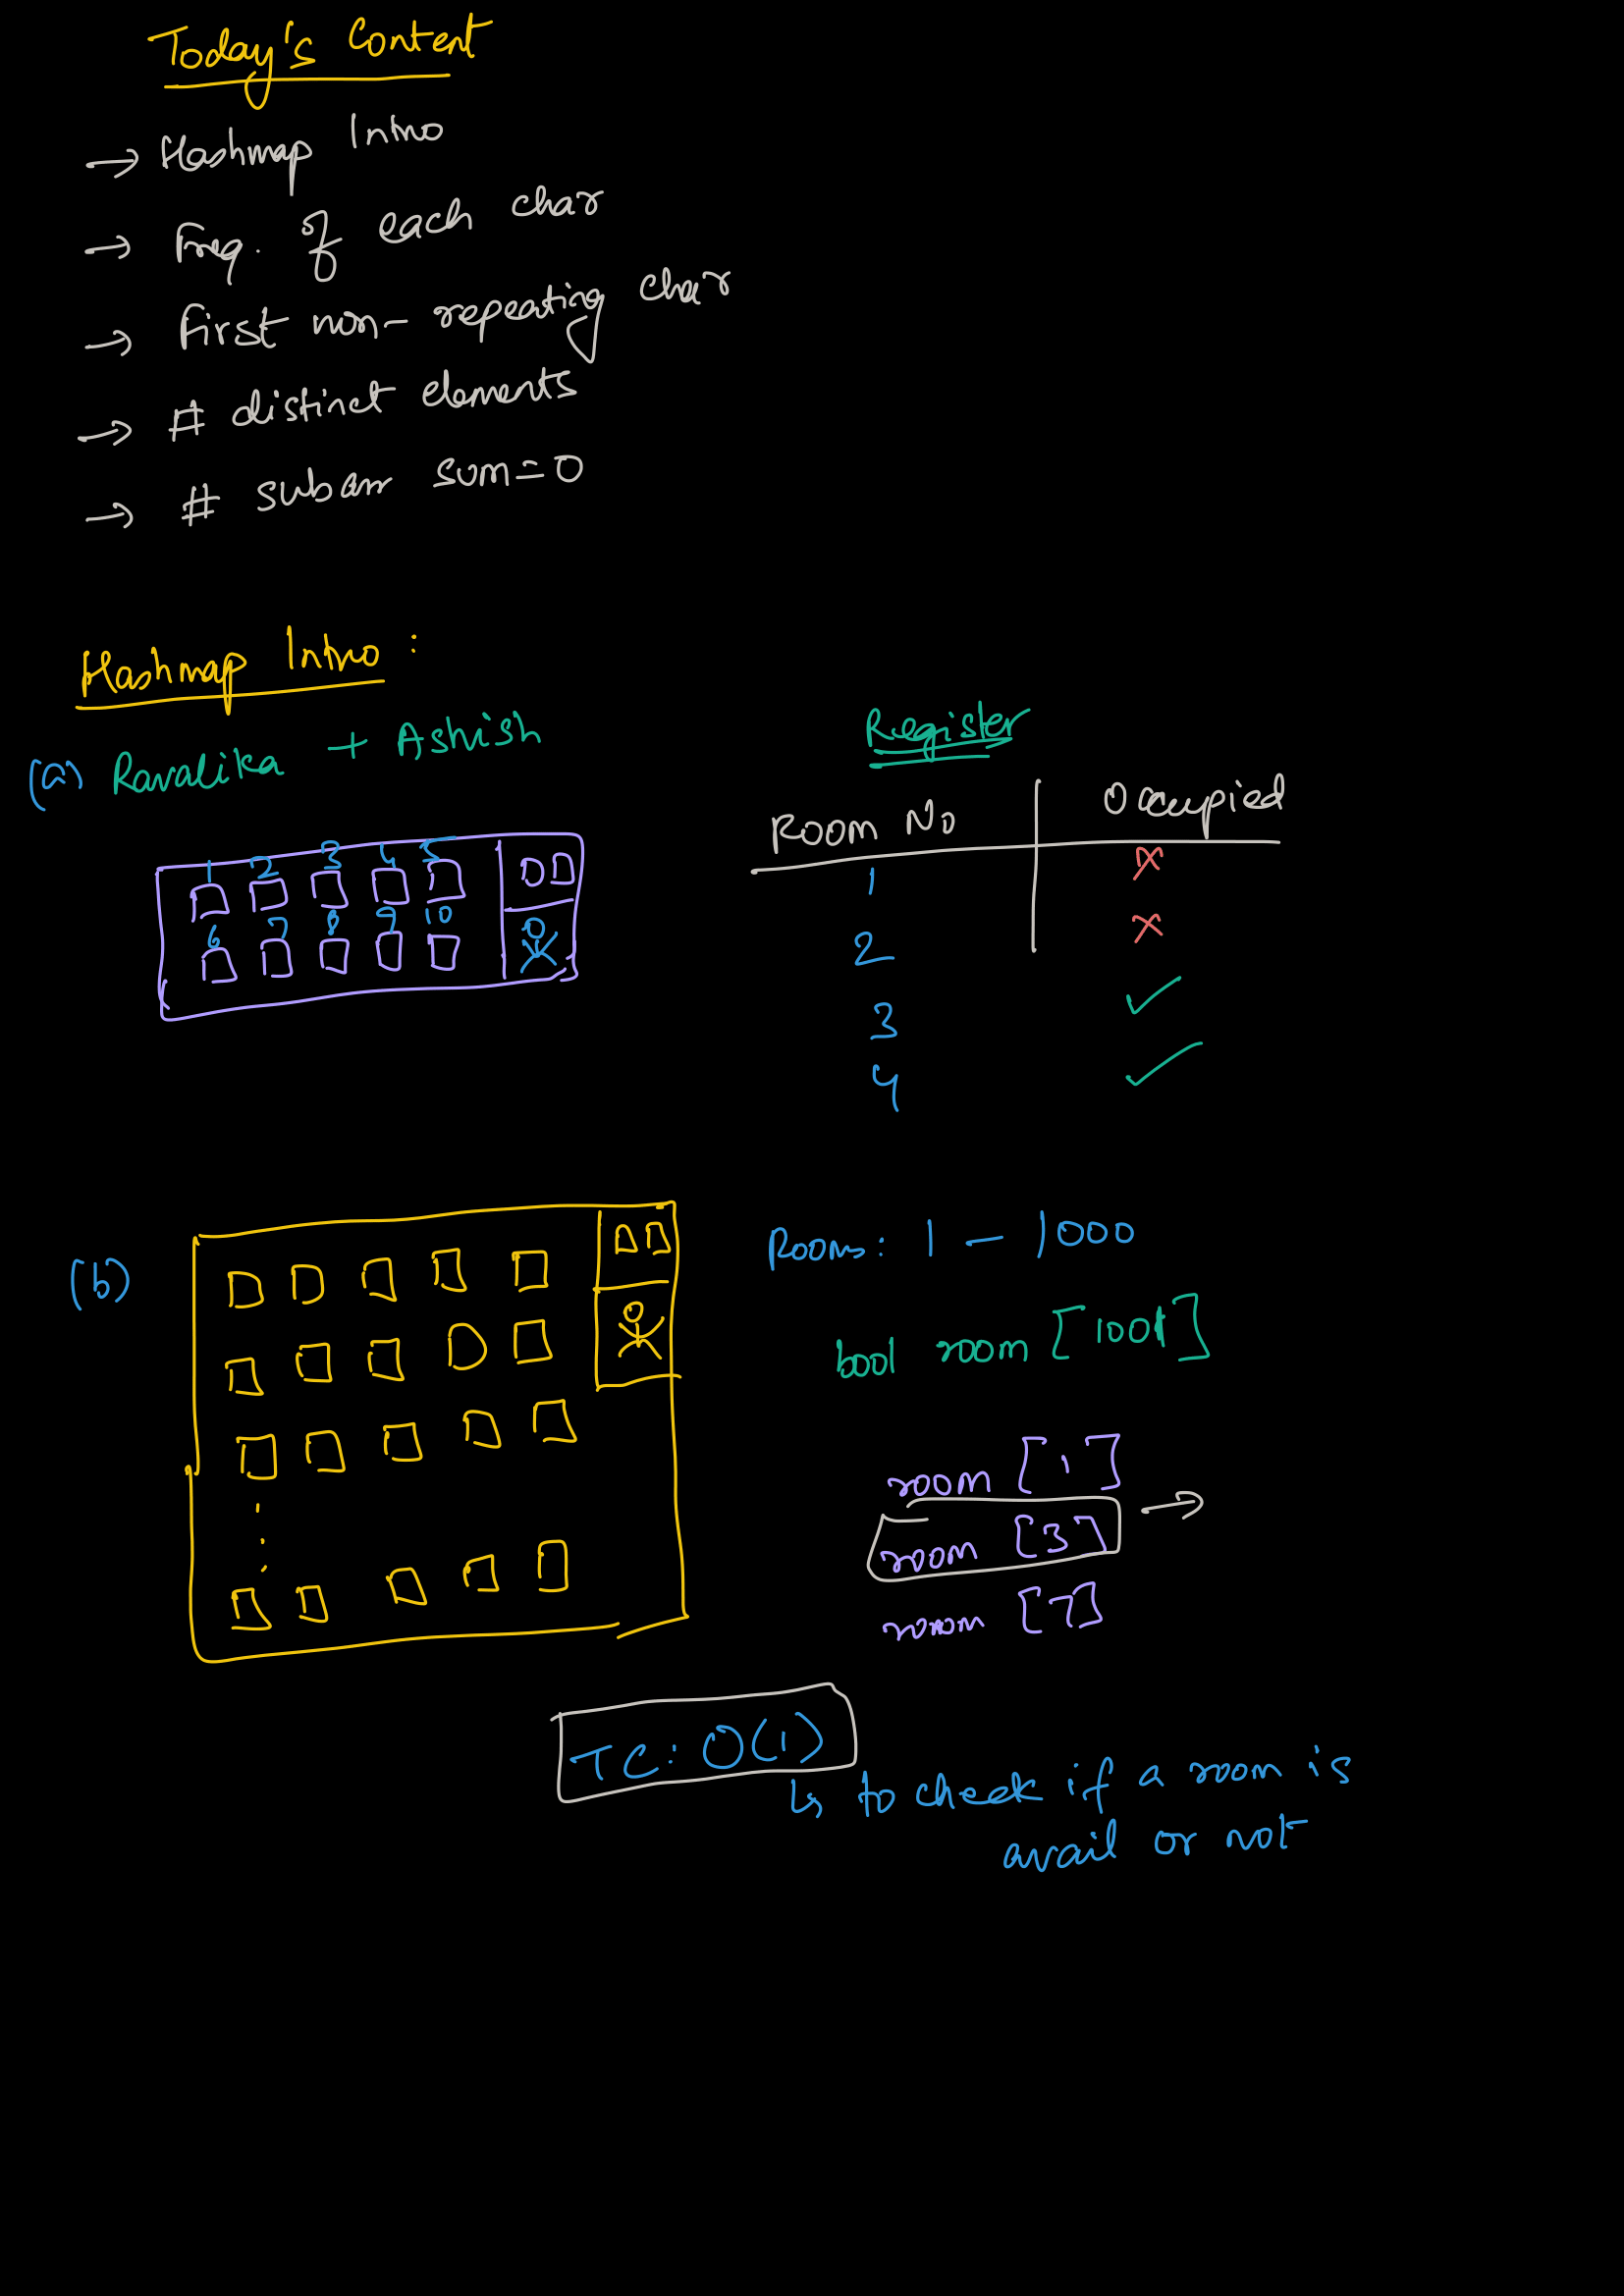 Today's Content
→ Hashmap Intro
→ Freq. of each char
→ First non-repeating char
→ # distinct elements
→ # subarr sum=0
Hashmap Intro:
(a) Ravalika + Ashish
1 2 3 4 5
6 7 8 9 10
Register
Room No | Occupied
1 ✗
2 ✗
3 ✓
4 ✓
(b)
Rooms: 1 - 1000
bool room [1001]
room [1]
room [3] →
room [7]
TC: O(1)
↳ to check if a room is
avail or not